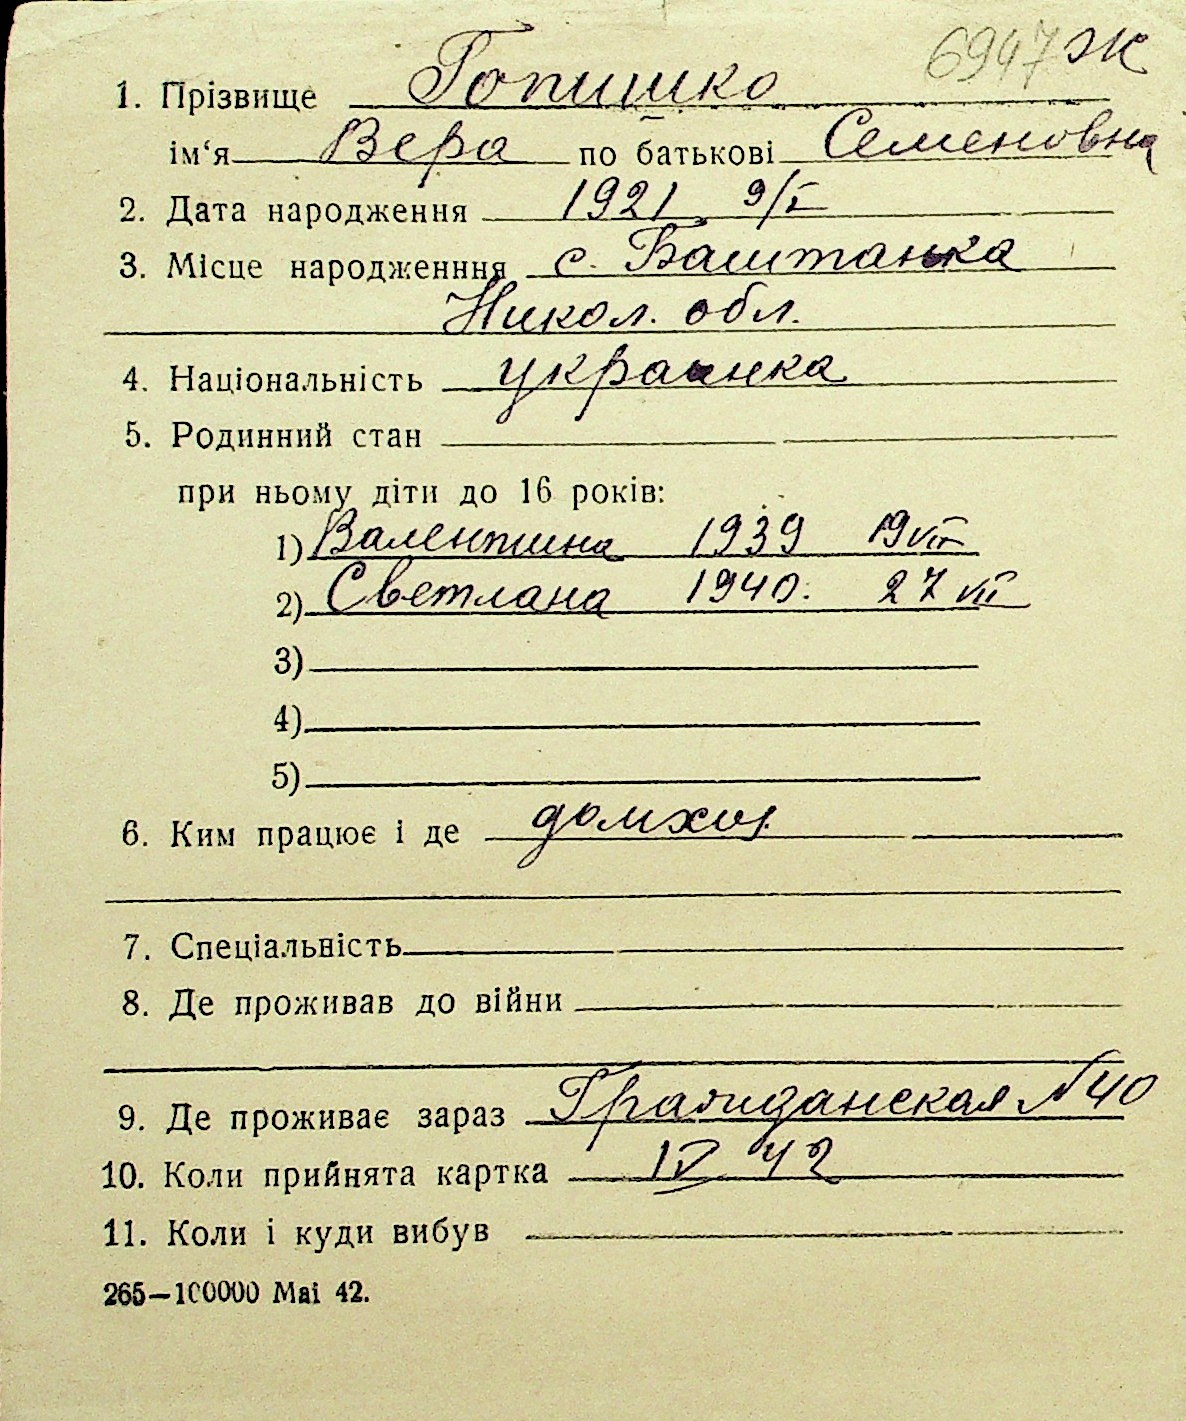 6947 Ж
1. Прізвище Гопишко
ім‘я Вера по батькові Семеновна
2. Дата народження 1921 9/I
3. Місце народженння с. Баштанка
Никол. обл.
4. Національність украинка
5. Родинний стан
при ньому діти до 16 років:
1) Валентина 1939 19 VII
2) Светлана 1940. 27 VII
3)
4)
5)
6. Ким працює і де домхоз.
7. Спеціальність
8. Де проживав до війни
9. Де проживає зараз Гражданская № 40
10. Коли прийнята картка IV 42
11. Коли і куди вибув
265—100000 Mai 42.